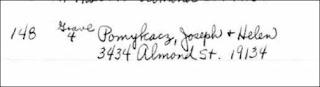 148 Grave 4 Pomykacz, Joseph + Helen
3434 Almond St. 19134